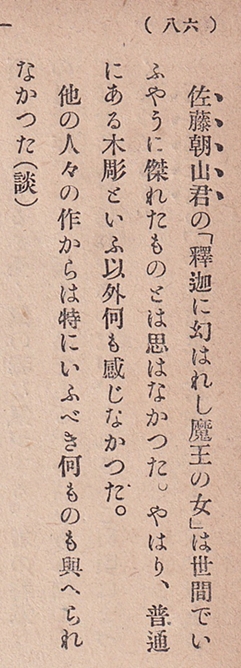 (六八)
佐藤朝山君の「釋迦に幻はれし魔王の女」は世間でい
ふやうに傑れたものとは思はなかつた。やはり、普通
にある木彫といふ以外何も感じなかつた。
他の人々の作からは特にいふべき何ものも與へられ
なかつた(談)